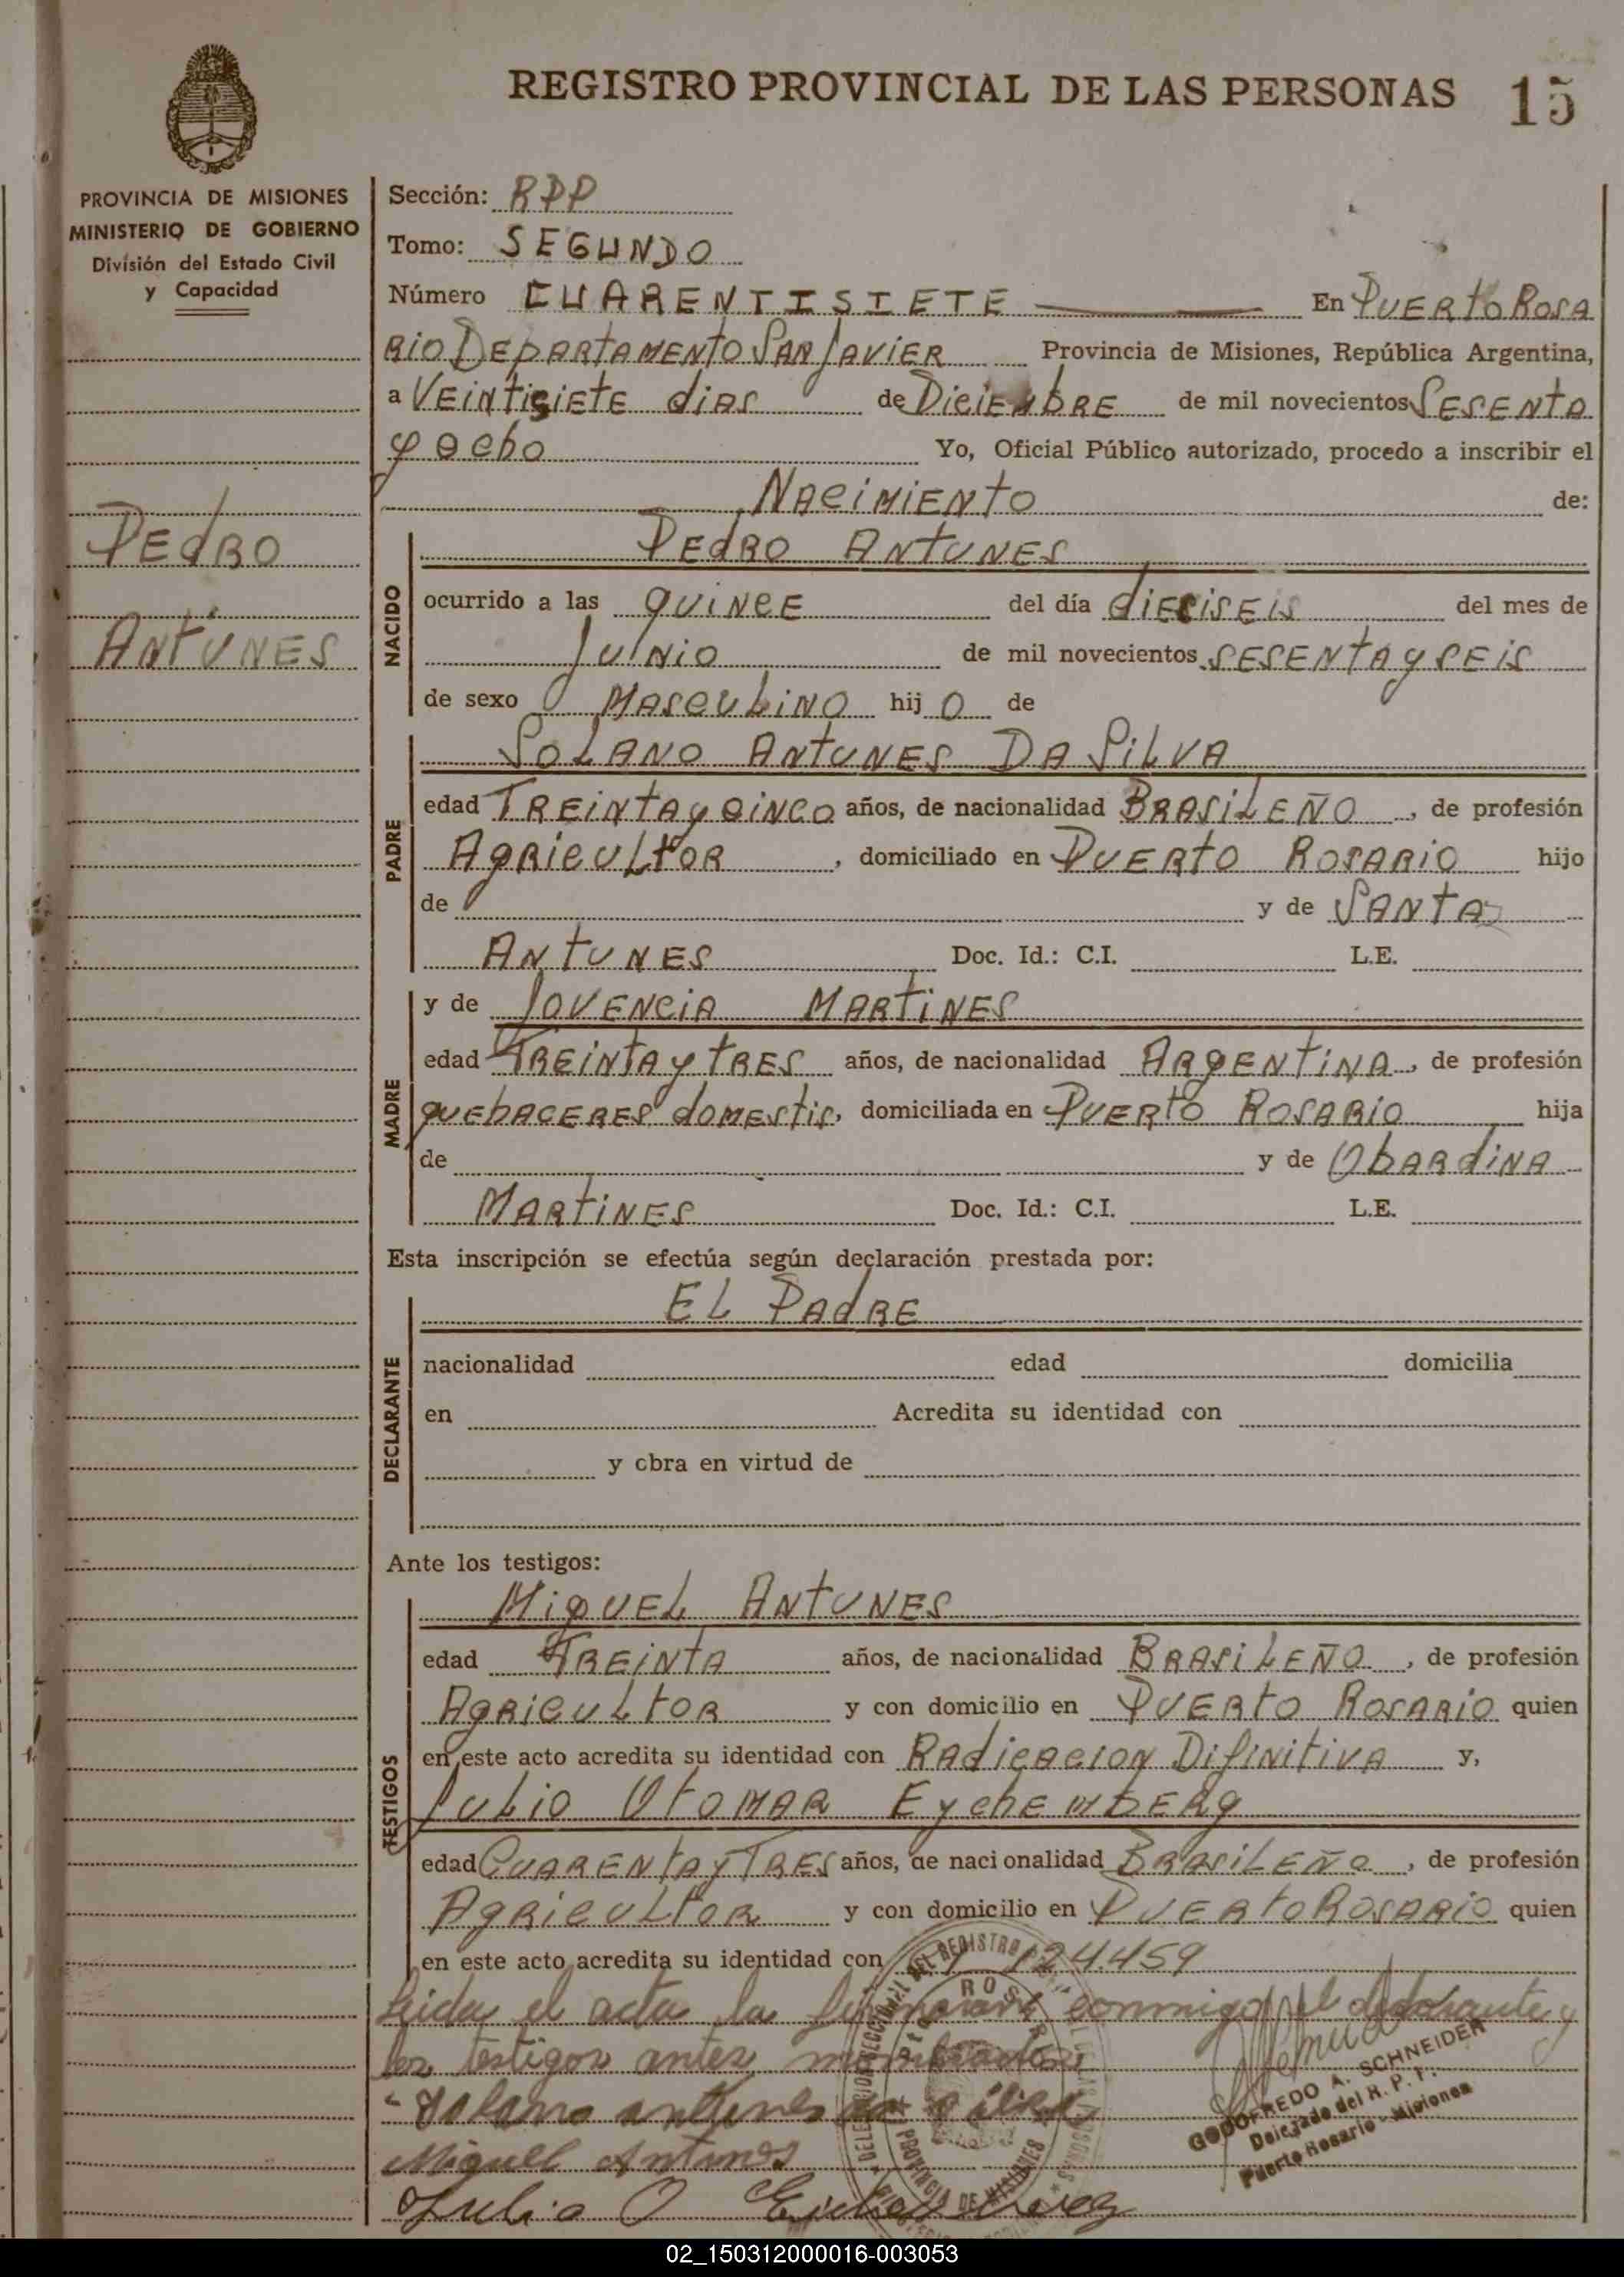 REGISTRO PROVINCIAL DE LAS PERSONAS 15
PROVINCIA DE MISIONES
MINISTERIO DE GOBIERNO
División del Estado Civil
y Capacidad
PEdRO
ANTUNES
Sección: RPP
Tomo: SEGUNDO
Número CUARENTISIETE En PUERtO ROSA
RIO DEPARTAMENTO SAN JAVIER Provincia de Misiones, República Argentina,
a VEiNtisiEtE diAS de DiciEmbRE de mil novecientos SESENtA
y ocho Yo, Oficial Público autorizado, procedo a inscribir el
NACiMiENtO de:
NACIDO
PEdRO ANtUNES
ocurrido a las quiNCE del día diECiSEiS del mes de
JuNio de mil novecientos SESENTA y SEiS
de sexo MASCULiNO hij O de
PADRE
SOLANO ANtUNES DA SiLVA
edad TREiNtA y CiNCO años, de nacionalidad BRASiLEÑO , de profesión
AgRiCULtOR , domiciliado en PUERtO ROSARiO hijo
de y de SANtA
ANtUNES Doc. Id.: C.I. L.E.
MADRE
y de JOVENCiA MARtiNES
edad TREiNTA y tRES años, de nacionalidad ARgENtiNA , de profesión
quEhACERES dOMEStis, domiciliada en PUERtO ROSARiO hija
de y de ObARdiNA
MARtiNES Doc. Id.: C.I. L.E.
Esta inscripción se efectúa según declaración prestada por:
DECLARANTE
EL PAdRE
nacionalidad edad domicilia
en Acredita su identidad con
y obra en virtud de
Ante los testigos:
TESTIGOS
MiqUEL ANtUNES
edad TREiNtA años, de nacionalidad BRASiLEÑO , de profesión
AgRiCULtOR y con domicilio en PUERtO ROSARiO quien
en este acto acredita su identidad con RAdiCACiON DifiNitiVA y,
JULiO OtOMAR EychEmbERg
edad CUARENtA y TRES años, de nacionalidad BRASiLEÑO , de profesión
AgRiCULtOR y con domicilio en PUERtO ROSARiO quien
en este acto acredita su identidad con 124.459
Leida el acta la firmaron conmigo el declarante y
los testigos antes
Solano antunes da silva
Miguel Antunes
Julio O
GODOFREDO A. SCHNEIDER
Delegado del R. P. P.
Puerto Rosario - Misiones
PROVINCIA DE MISIONES
02_150312000016-003053